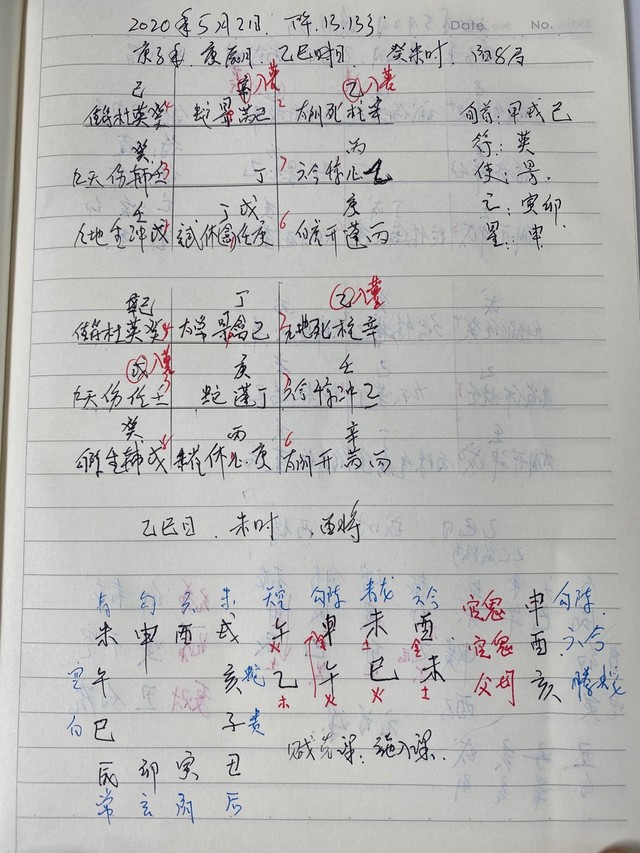 2020年5月2日. 下午.13.13分:
Date No.
庚子年. 庚辰月. 乙巳时日. 癸未时. 阴8局
己 入墓 乙 入墓
值符杜英癸 4 蛇景芮己 2 太阴死柱辛 旬首: 甲戌己
癸 丙 符: 英
九天伤辅壬 3 丁 7 六合惊心乙 使: 景.
壬 丁戊 庚 亡: 寅卯
九地生冲戊 玄武休禽任庚 6 白虎开蓬丙 星: 申
己 丁 乙 入墓
值符杜英癸 4 禽己 九地死柱辛
戊 入墓 庚 壬
九天伤任壬 3 蛇蓬丁 六合惊冲乙
癸 丙 辛
生辅戊 休心庚 6 太阴开芮丙
乙巳日. 未时. 酉将
青 勾 六 朱 天空 勾陈 青龙 六合 官鬼 申 勾陈
未 申 酉 戌 午 申 未 酉 官鬼 酉 六合
火 金 土 金
午 亥 蛇 乙 午 巳 未 父母 亥 螣蛇
木 火 火 土
白 巳 子 贵
贼克课.
辰 卯 寅 丑
常 玄 阴 后